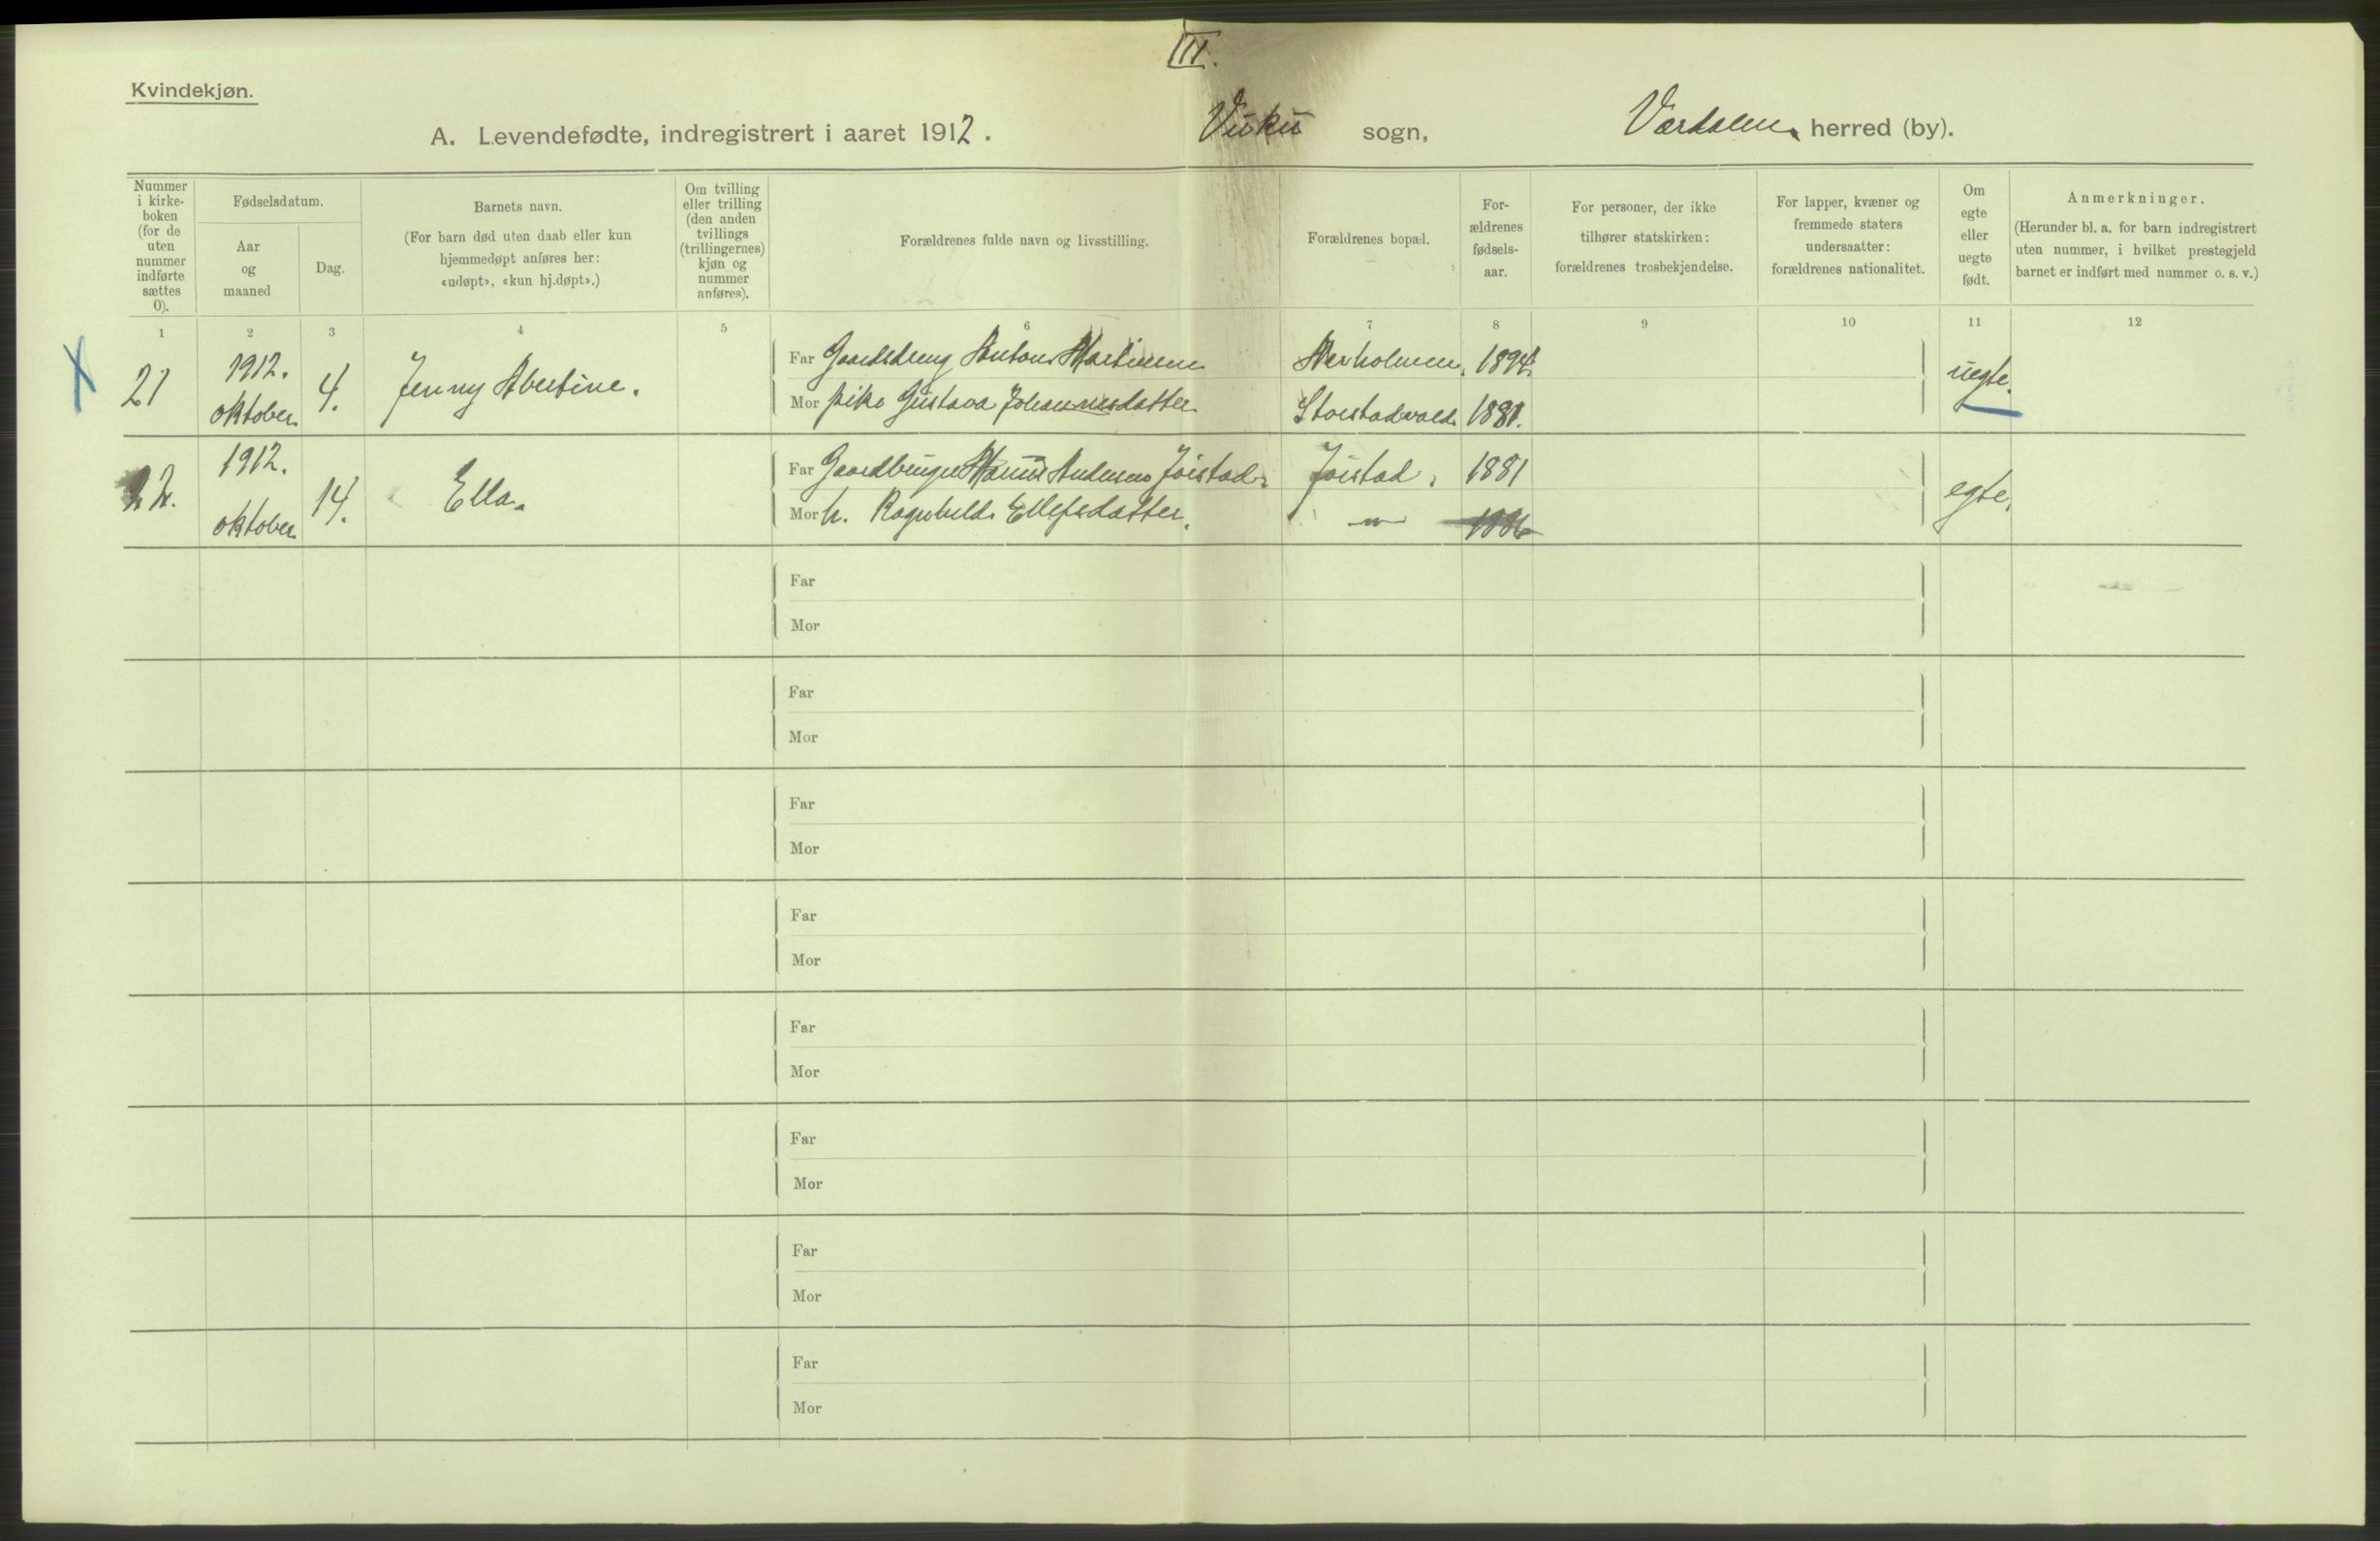 III.
Kvindekjøn.
A. Levendefødte, indregistrert i aaret 1912. Vuku sogn, Værdalen herred (by).
Nummer i kirke-boken (for de uten nummer indførte sættes 0).
Fødselsdatum.
Aar og maaned
Dag.
Barnets navn.
(For barn død uten daab eller kun hjemmedøpt anføres her: «udøpt», «kun hj.døpt».)
Om tvilling eller trilling (den anden tvillings (trillingernes) kjøn og nummer anføres).
Forældrenes fulde navn og livsstilling.
Forældrenes bopæl.
For-ældrenes fødsels-aar.
For personer, der ikke tilhører statskirken: forældrenes trosbekjendelse.
For lapper, kvæner og fremmede staters undersaatter: forældrenes nationalitet.
Om egte eller uegte født.
Anmerkninger.
(Herunder bl. a. for barn indregistrert uten nummer, i hvilket prestegjeld barnet er indført med nummer o. s. v.)
1 2 3 4 5 6 7 8 9 10 11 12
21 1912. oktober 4. Jenny Abertine. uegte.
Far Gaardsdreng Anton Martinsen
Mor pike Gustava Johannesdatter Storstadvald 1881.
22. 1912. oktober 14. Ella. egte.
Far Gaardbruger Andersen Jøistad Jøistad, 1881
Mor h. Ragnhild Ellefsdatter. — 1886
Far
Mor
Far
Mor
Far
Mor
Far
Mor
Far
Mor
Far
Mor
Far
Mor
Far
Mor